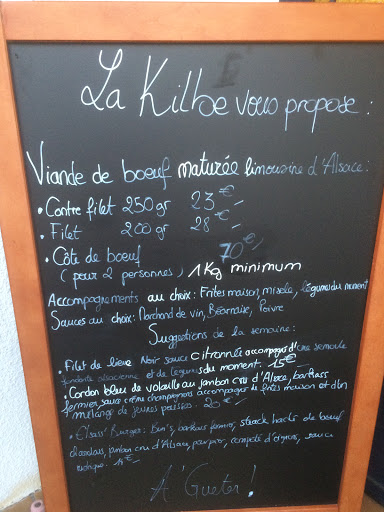 La Kilbe vous propose :
Viande de boeuf maturée limousine d'Alsace :
• Contre filet 250 gr 23 €,-
• Filet 200 gr 28 €,-
• Côte de boeuf 70 €,-
(pour 2 personnes) 1 Kg minimum
Accompagnements au choix : Frites maison, salade, légumes du moment
Sauces au choix : Marchand de vin, Béarnaise, Poivre
Suggestions de la semaine :
• Filet de lieu Noir sauce citronnée accompagné d'une semoule
fondante alsacienne et de légumes du moment. 15 €
• Cordon bleu de volaille au jambon cru d'Alsace, barkass
fermier, sauce crème champignons accompagné de frites maison et d'un
mélange de jeunes pousses. 20 €,-
• Elsass' Burger : Bun's, barkass fermier, steack haché de boeuf
charolais, jambon cru d'Alsace, compoté d'oignons, sauce
A' Gueter !